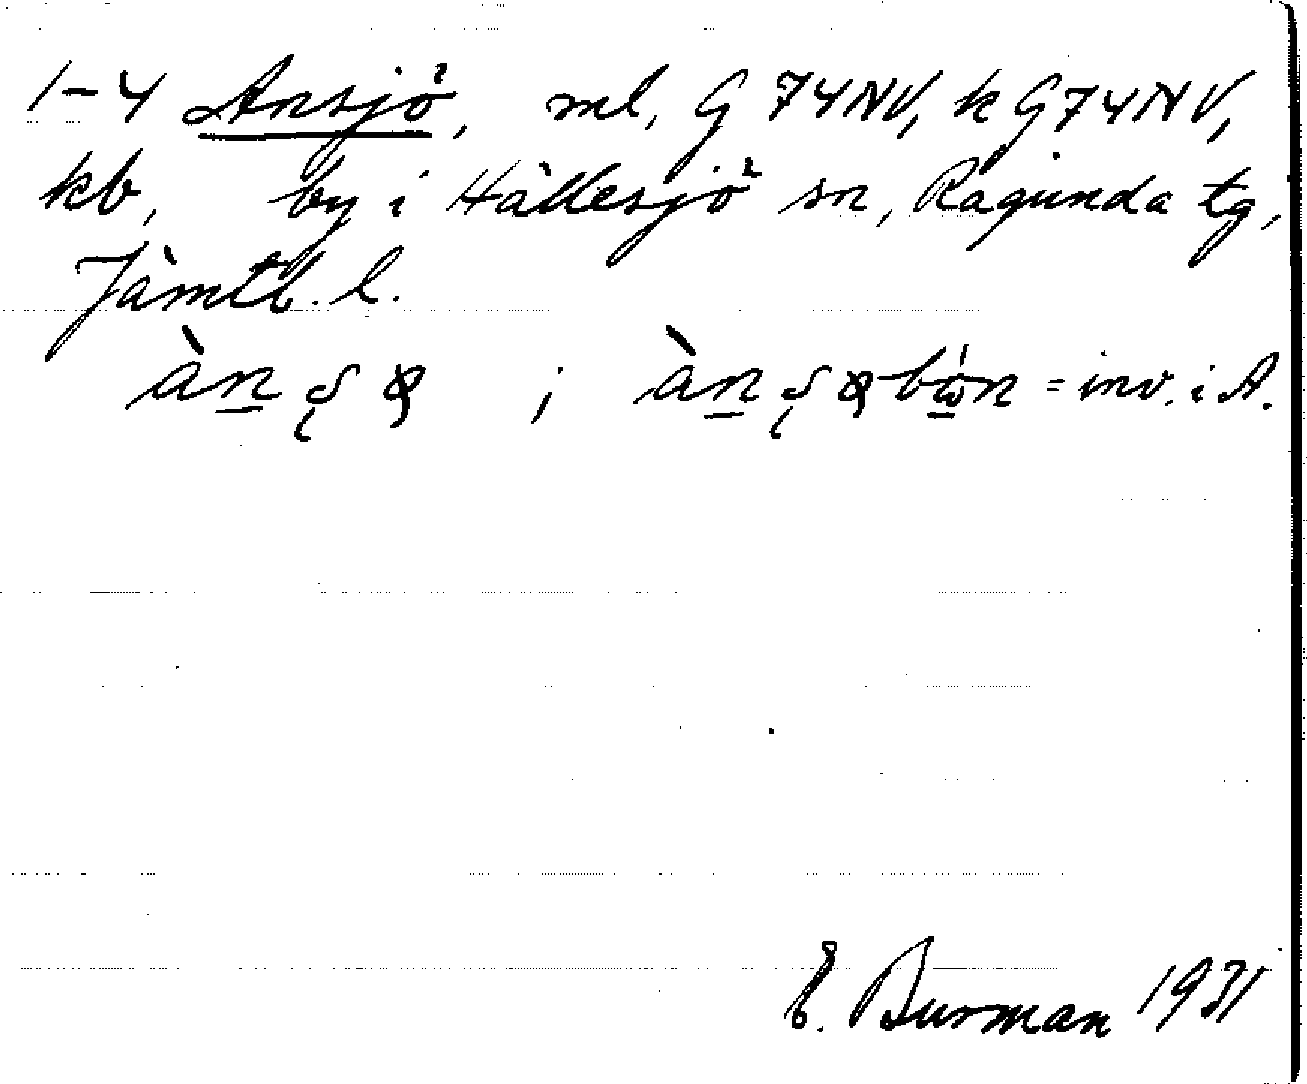 1-4 Ansjö, ml, G 74NV, k G74NV,
kb, by i Hällesjö sn, Ragunda tg,
Jämtl. l.
; = inv. i A.
E. Burman 1931